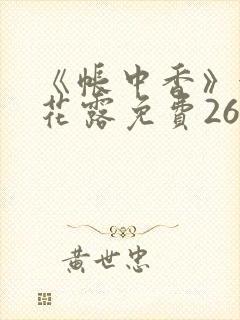 《帐中香》
花露免費26
黄世忠